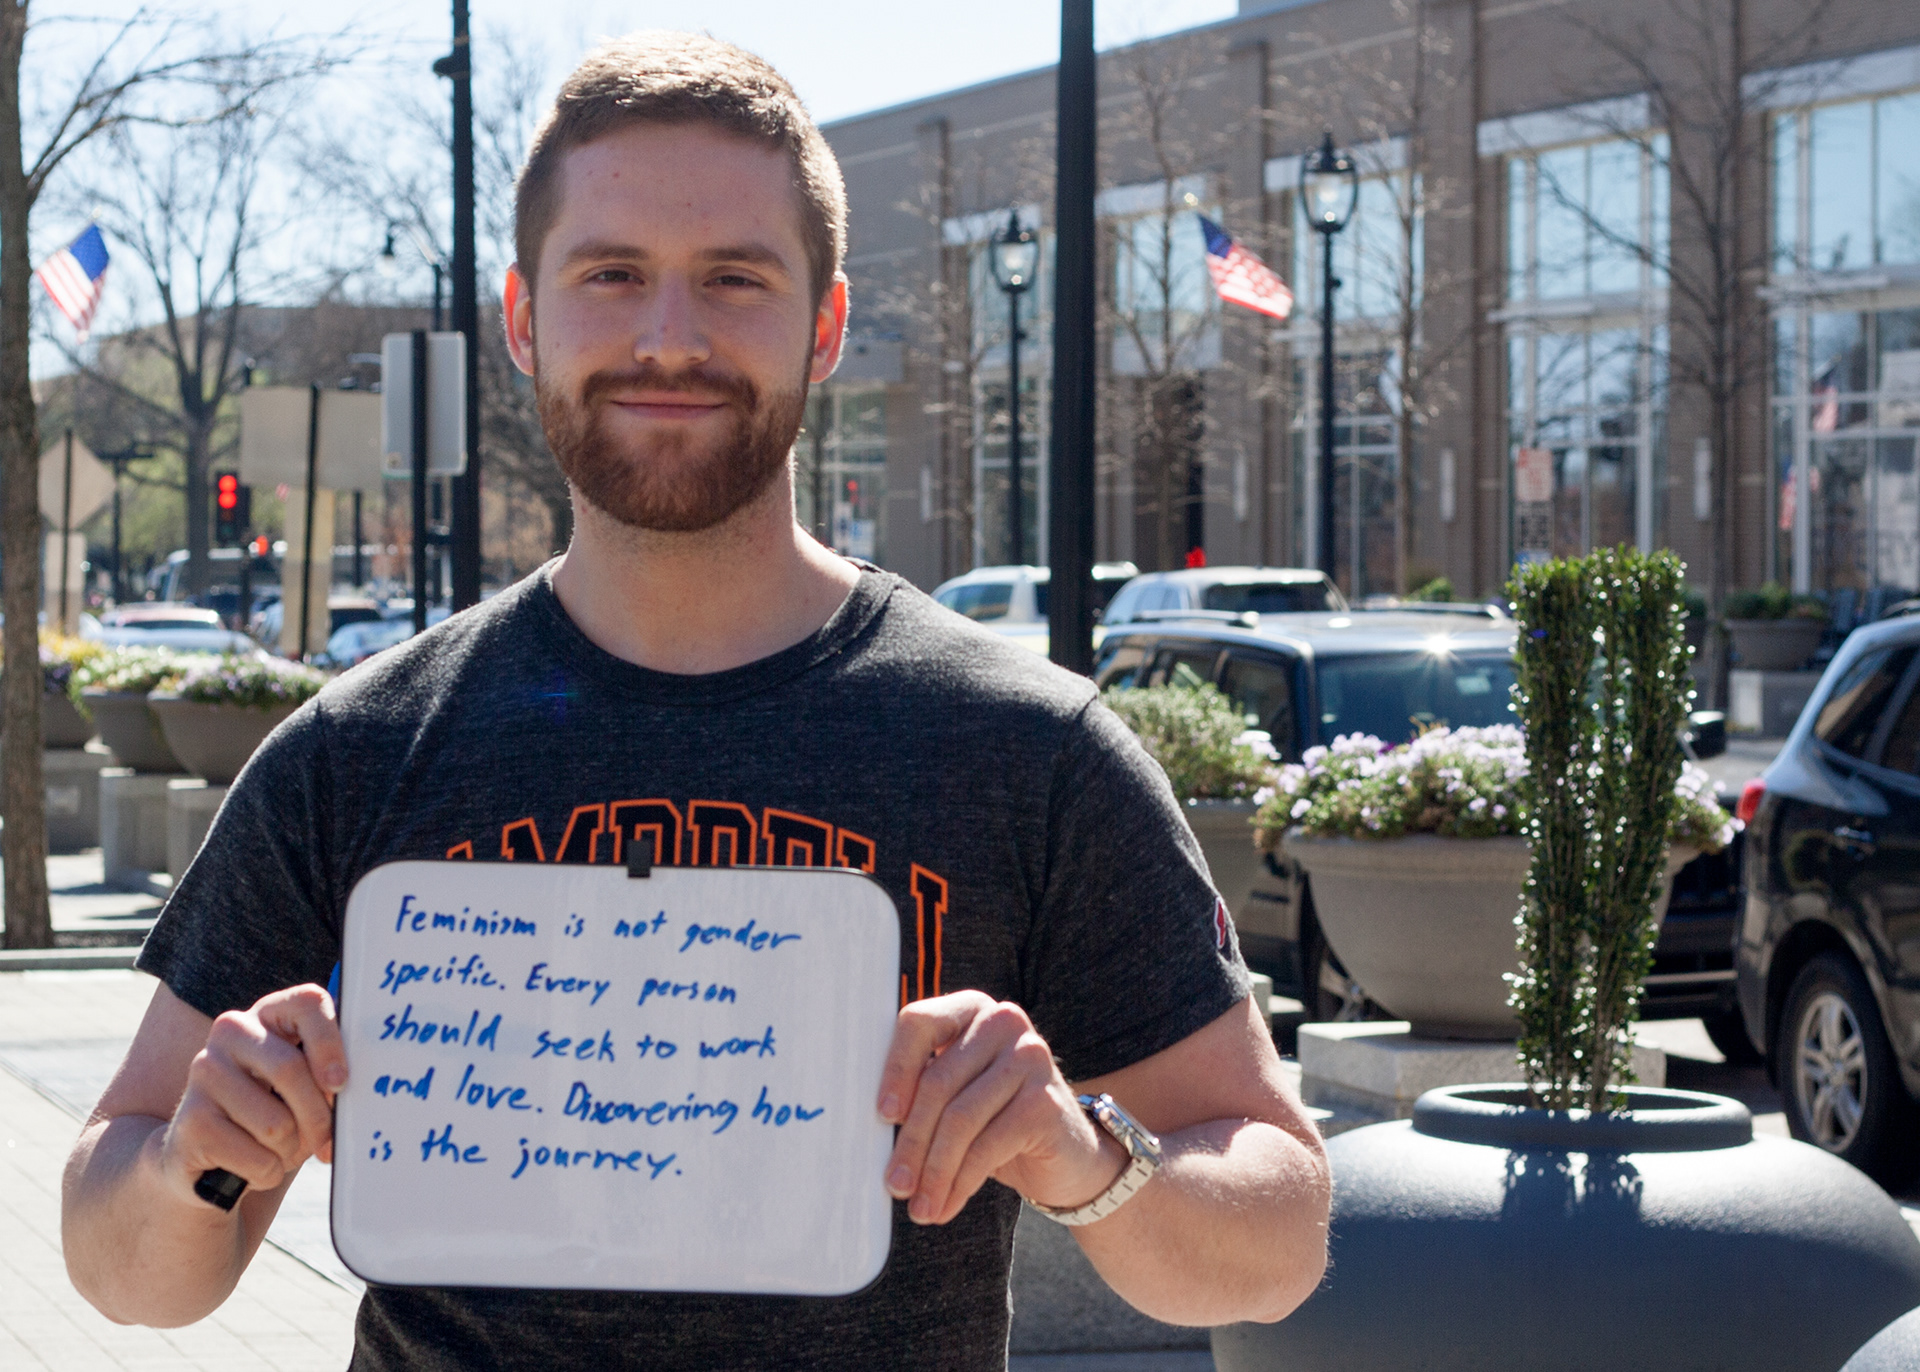 Feminism is not gender
specific. Every person
should seek to work
and love. Discovering how
is the journey.